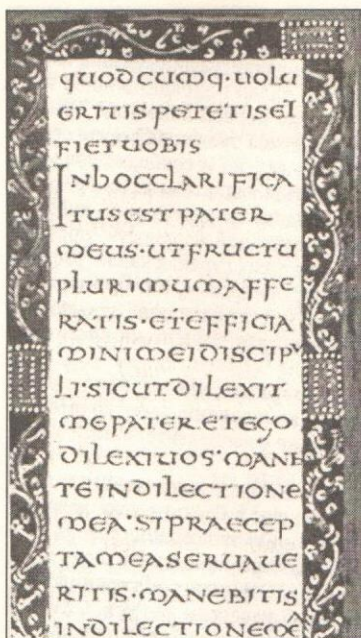 quodcumq·uolu
eritispetetiset
fietuobis
Inhocclarifica
tusestpater
meus·utfructu
plurimumaffe
ratis·etefficia
minimeidiscipu
li·sicutdilexit
mepateretego
dilexiuos·mane
teindilectione
mea·sipraecep
tameaseruaue
ritis·manebitis
indilectioneme